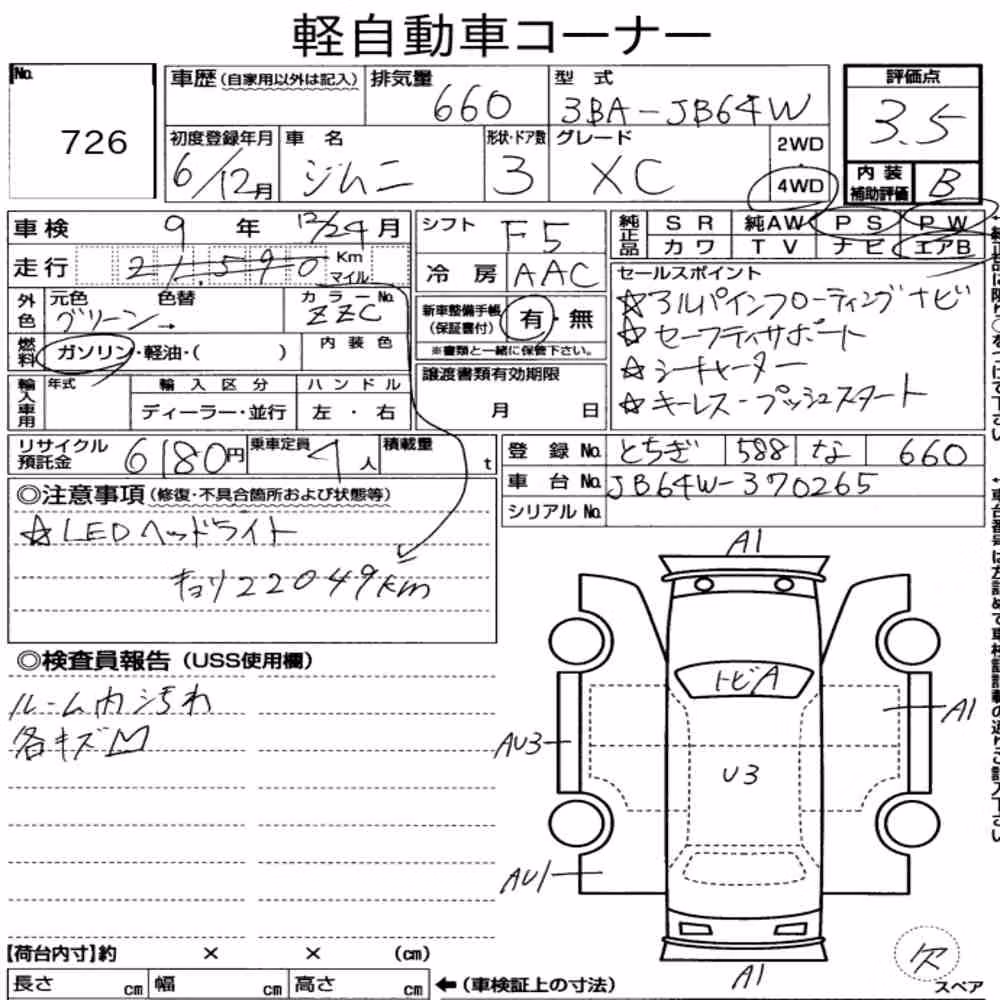 軽自動車コーナー
No. 726
車歴 (自家用以外は記入) 排気量 660 型式 3BA-JB64W
評価点 3.5
初度登録年月 6/12月 車名 ジムニ 形状・ドア数 3 グレード XC 2WD 4WD
内装補助評価 B
車検 9年 12/24月 シフト F5
純正品 SR 純AW PS PW
カワ TV ナビ エアB
走行 21,590 Km マイル
冷房 AAC
外色 元色 グリーン 色替 → カラーNo. ZZC
新車整備手帳(保証書付) 有・無
※書類と一緒に保管下さい。
セールスポイント
☆アルパインフローティングナビ
☆セーフティサポート
☆シーキャーター
☆キーレス-プッシュスタート
燃料 ガソリン・軽油・( ) 内装色
輸入車用 年式 輸入区分 ハンドル
ディーラー・並行 左・右
譲渡書類有効期限
月 日
リサイクル預託金 6180円 乗車定員 4人 積載量 t
登録No. とちぎ 588 な 660
車台No. JB64W-370265
シリアルNo.
◎注意事項 (修復・不具合箇所および状態等)
☆LEDヘッドライト
キョリ22049km
◎検査員報告 (USS使用欄)
ルーム内汚れ
各キズ凹
A1
トビA
A1
AU3
U3
AU1
A1
欠
スペア
【荷台内寸】約 × × (cm)
長さ cm 幅 cm 高さ cm ←(車検証上の寸法)